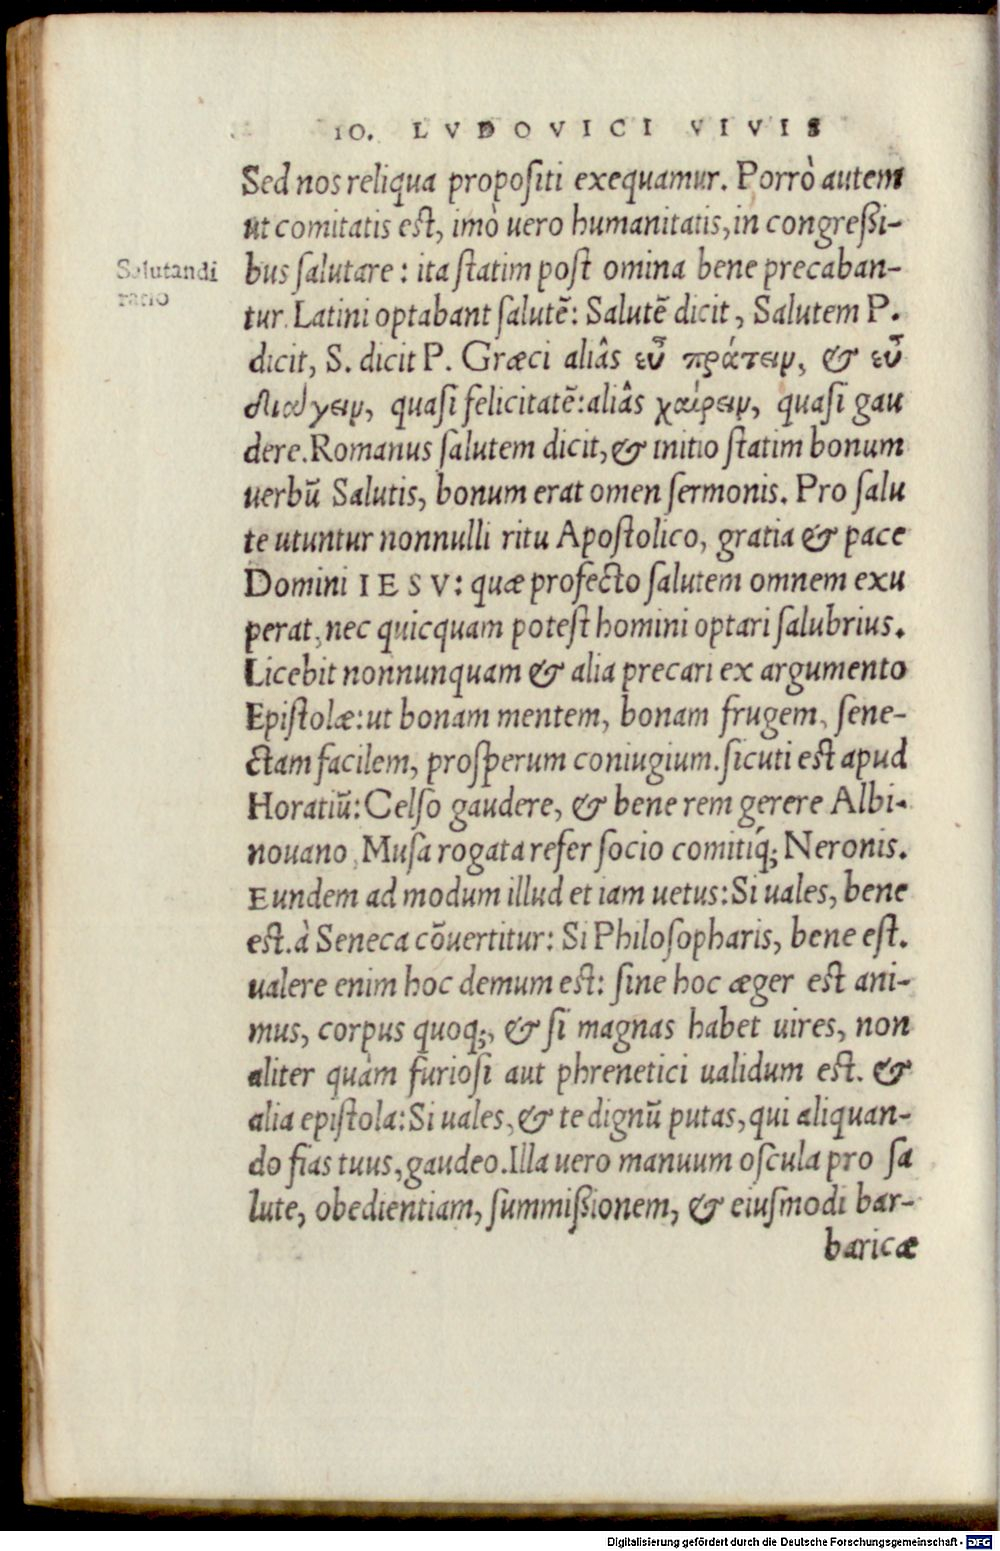 IO. LVDOVICI VIVIS
Sed nos reliqua propoſiti exequamur. Porrò autem
ut comitatis eſt, imò uero humanitatis, in congreßi-
Salutandi
ratio
bus ſalutare: ita ſtatim poſt omina bene precaban-
tur. Latini optabant ſalutē: Salutē dicit, Salutem P.
dicit, S. dicit P. Græci aliâs εὖ πράττειν, & εὖ
διάγειν, quaſi felicitatē: aliâs χαίρειν, quaſi gau
dere. Romanus ſalutem dicit, & initio ſtatim bonum
uerbū Salutis, bonum erat omen ſermonis. Pro ſalu
te utuntur nonnulli ritu Apoſtolico, gratia & pace
Domini IESV: quæ profecto ſalutem omnem exu
perat, nec quicquam poteſt homini optari ſalubrius.
Licebit nonnunquam & alia precari ex argumento
Epiſtolæ: ut bonam mentem, bonam frugem, ſene-
ctam facilem, proſperum coniugium. ſicuti eſt apud
Horatiū: Celſo gaudere, & bene rem gerere Albi-
nouano, Muſa rogata refer ſocio comitíq; Neronis.
Eundem ad modum illud et iam uetus: Si uales, bene
eſt. à Seneca cōuertitur: Si Philoſopharis, bene eſt.
ualere enim hoc demum eſt: ſine hoc æger eſt ani-
mus, corpus quoq;, & ſi magnas habet uires, non
aliter quàm furioſi aut phrenetici ualidum eſt. &
alia epiſtola: Si uales, & te dignū putas, qui aliquan-
do fias tuus, gaudeo. Illa uero manuum oſcula pro ſa
lute, obedientiam, ſummißionem, & eiuſmodi bar-
baricæ
Digitalisierung gefördert durch die Deutsche Forschungsgemeinschaft - DFG